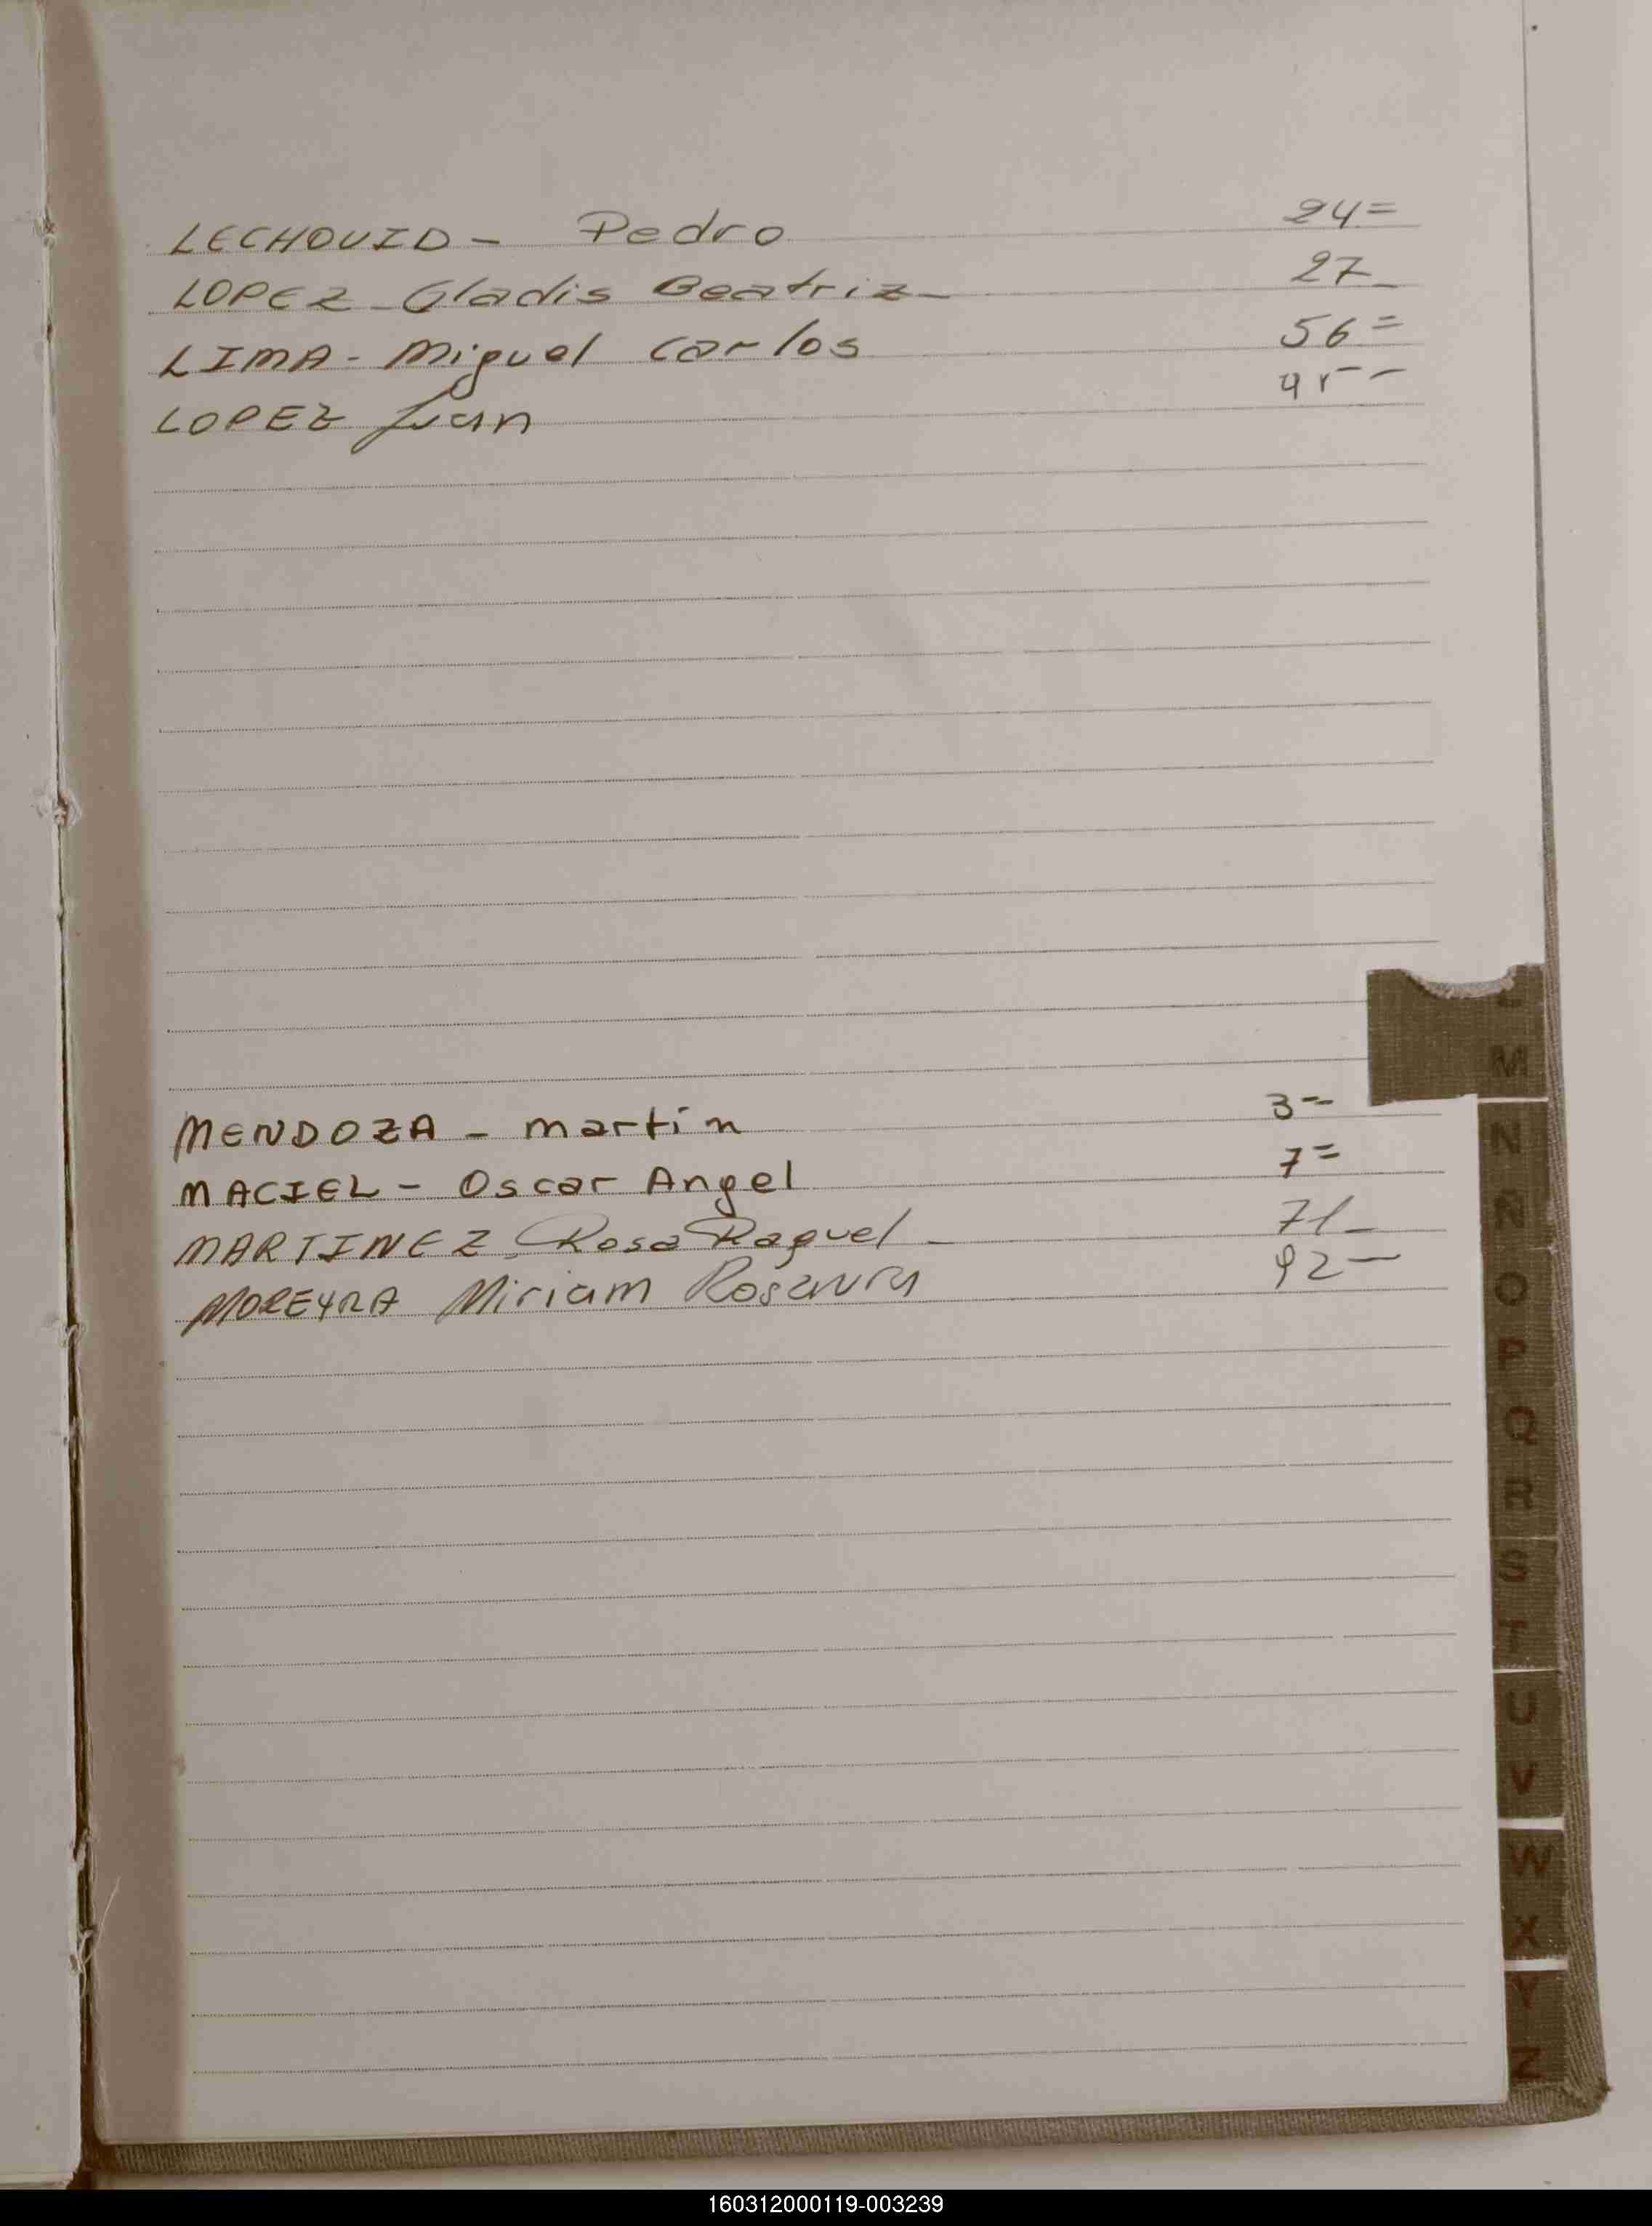 LECHOUID - Pedro 24=
LOPEZ - Gladis Beatriz - 27_
LIMA - Miguel Carlos 56=
LOPEZ Juan
MENDOZA - martín 3=
MACIEL - Oscar Angel 7=
MARTINEZ, Rosa Raquel - 71_
MOREYRA Miriam Rosaura 92-
L
M
N
Ñ
O
P
Q
R
S
T
U
V
W
X
Y
Z
160312000119-003239